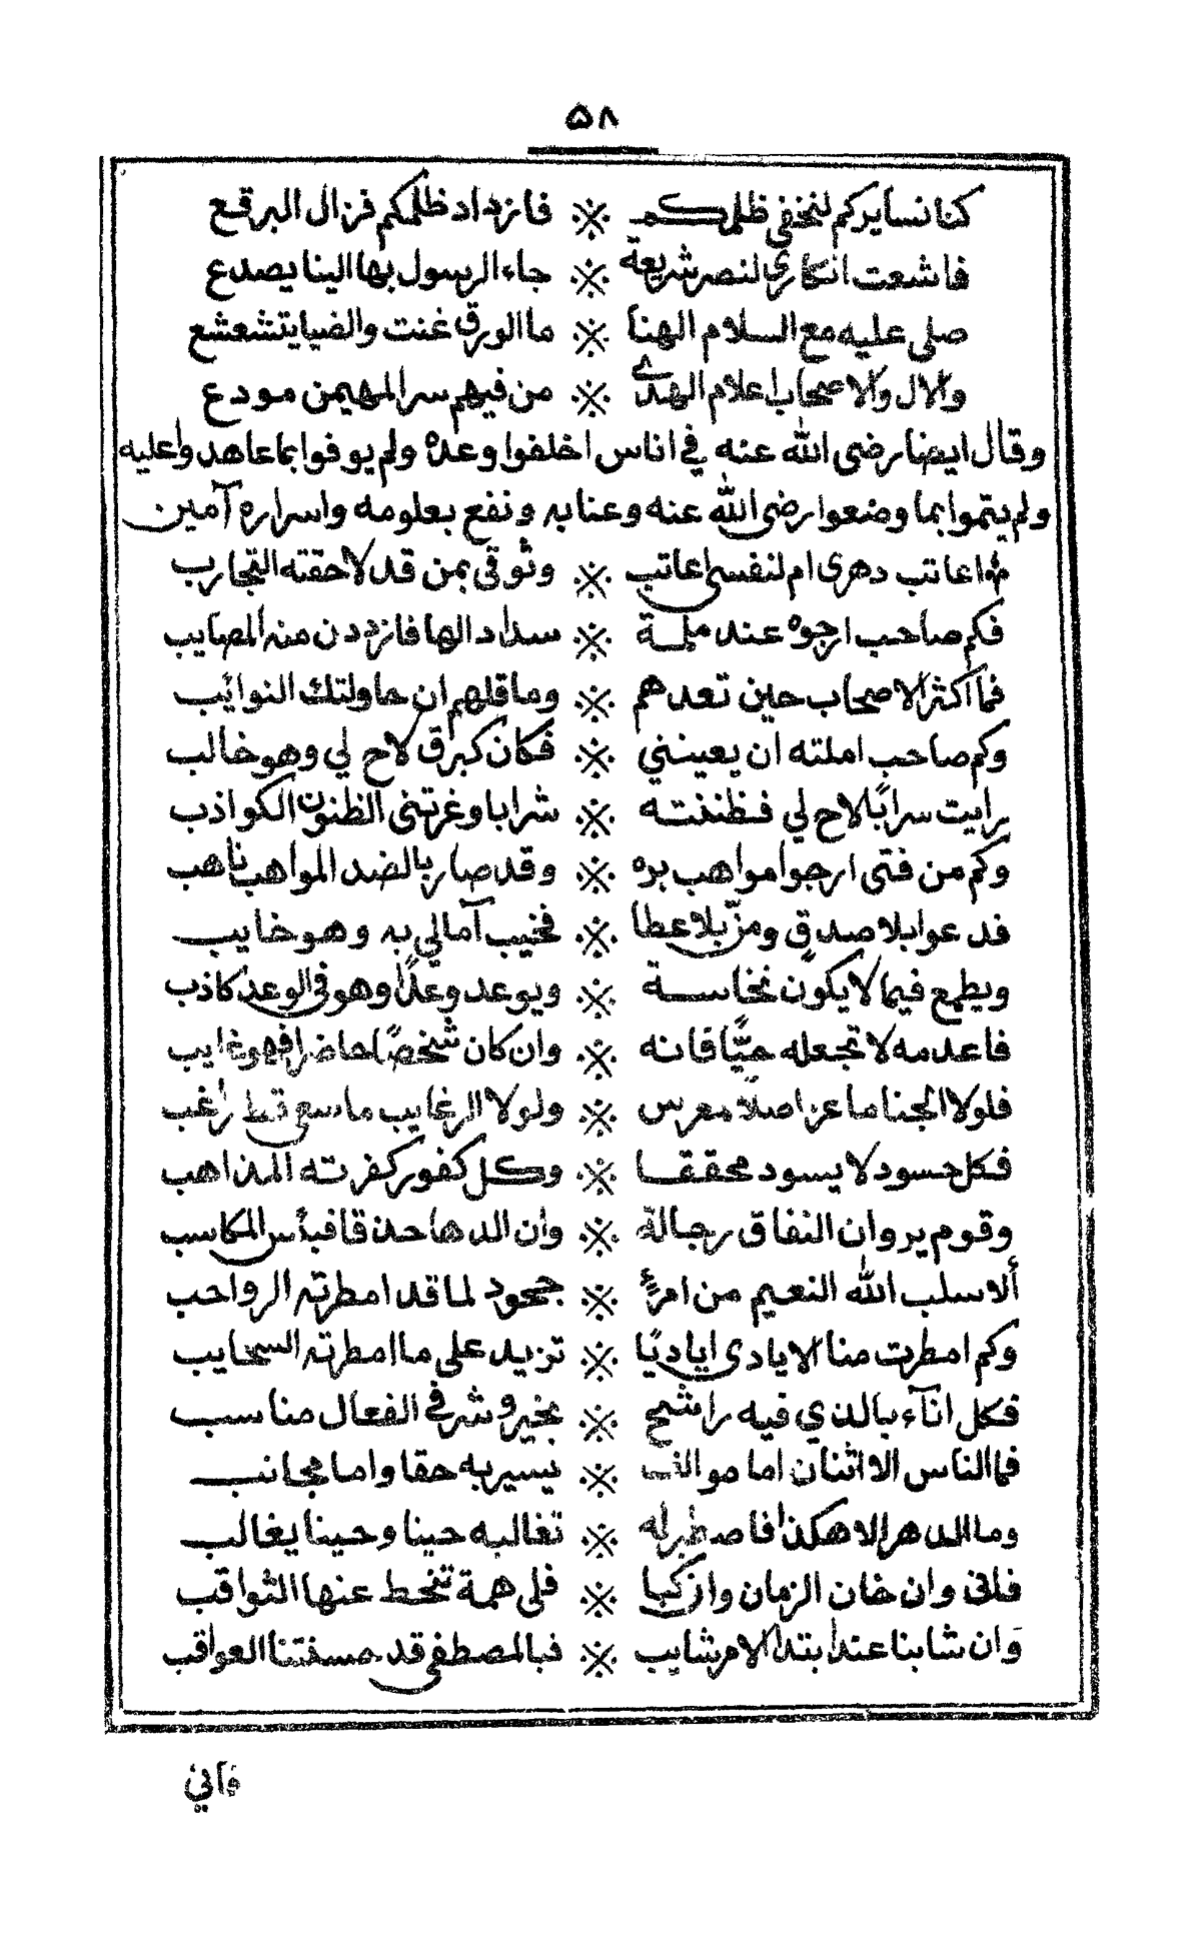 ٥٨
كنا نسايركم لنخفي ظلمكم ※ فازداد ظلمكم فزال البرقع
فاشعت انكاري لنصر شريعة ※ جاء الرسول بها الينا يصدع
صلى عليه مع السلام الهنا ※ ما الورق غنت والضيا يتشعشع
والال والاصحاب اعلام الهدى ※ من فيهم سر المهيمن مودع
وقال ايضا رضى الله عنه في اناس اخلفوا وعده ولم يوفوا بما عاهدوا عليه
ولم يتموا بما وضعوا رضى الله عنه وعنا به ونفع بعلومه واسراره آمين
اعاتب دهرى ام لنفسى اعاتب ※ وثوقى بمن قد لاحقته التجارب
فكم صاحب ارجوه عند ملمة ※ سدادا لها فازددن منه المصايب
فما اكثر الاصحاب حين تعدهم ※ وما قلهم ان حاولتك النوائب
وكم صاحب املته ان يعينني ※ فكان كبرق لاح لي وهو خالب
رايت سرابًا لاح لي فظننته ※ شرابا وغرتنى الظنون الكواذب
وكم من فتى ارجوا مواهب بره ※ وقد صار بالضد المواهب ناهب
فدعوا بلا صدق ومنّ بلا عطا ※ فخيب آمالي به وهو خايب
ويطمع فيما لا يكون نخاسة ※ ويوعد وعدًا وهو في الوعد كاذب
فاعدمه لا تجعله حيًّا فانه ※ وان كان شخصًا حاضرا فهو غايب
فلولا الجنا ما عز اصلًا معرس ※ ولولا الرغايب ما سعى قط راغب
فكل حسود لا يسود محققا ※ وكل كفور كفرته المذاهب
وقوم يروان النفاق رجالة ※ وان الدها حذقا فبئس المكاسب
ألا سلب الله النعيم من امرئٍ ※ جحود لما قد امطرته الرواحب
وكم امطرت منا الايادى اياديًا ※ تزيد على ما امطرته السحايب
فكل اناء بالذي فيه راشح ※ بخير وشر في الفعال مناسب
فما الناس الا اثنان اما موالف ※ يسير به حقا واما مجانب
وما الدهر الا هكذا فاصطبر له ※ تغالبه حينا وحينا يغالب
فانى وان خان الزمان وان كبا ※ فلى همة تنحط عنها الثواقب
وان شابنا عند ابتدا الامر شايب ※ فبالمصطفى قد مسفتنا العواقب
فاني